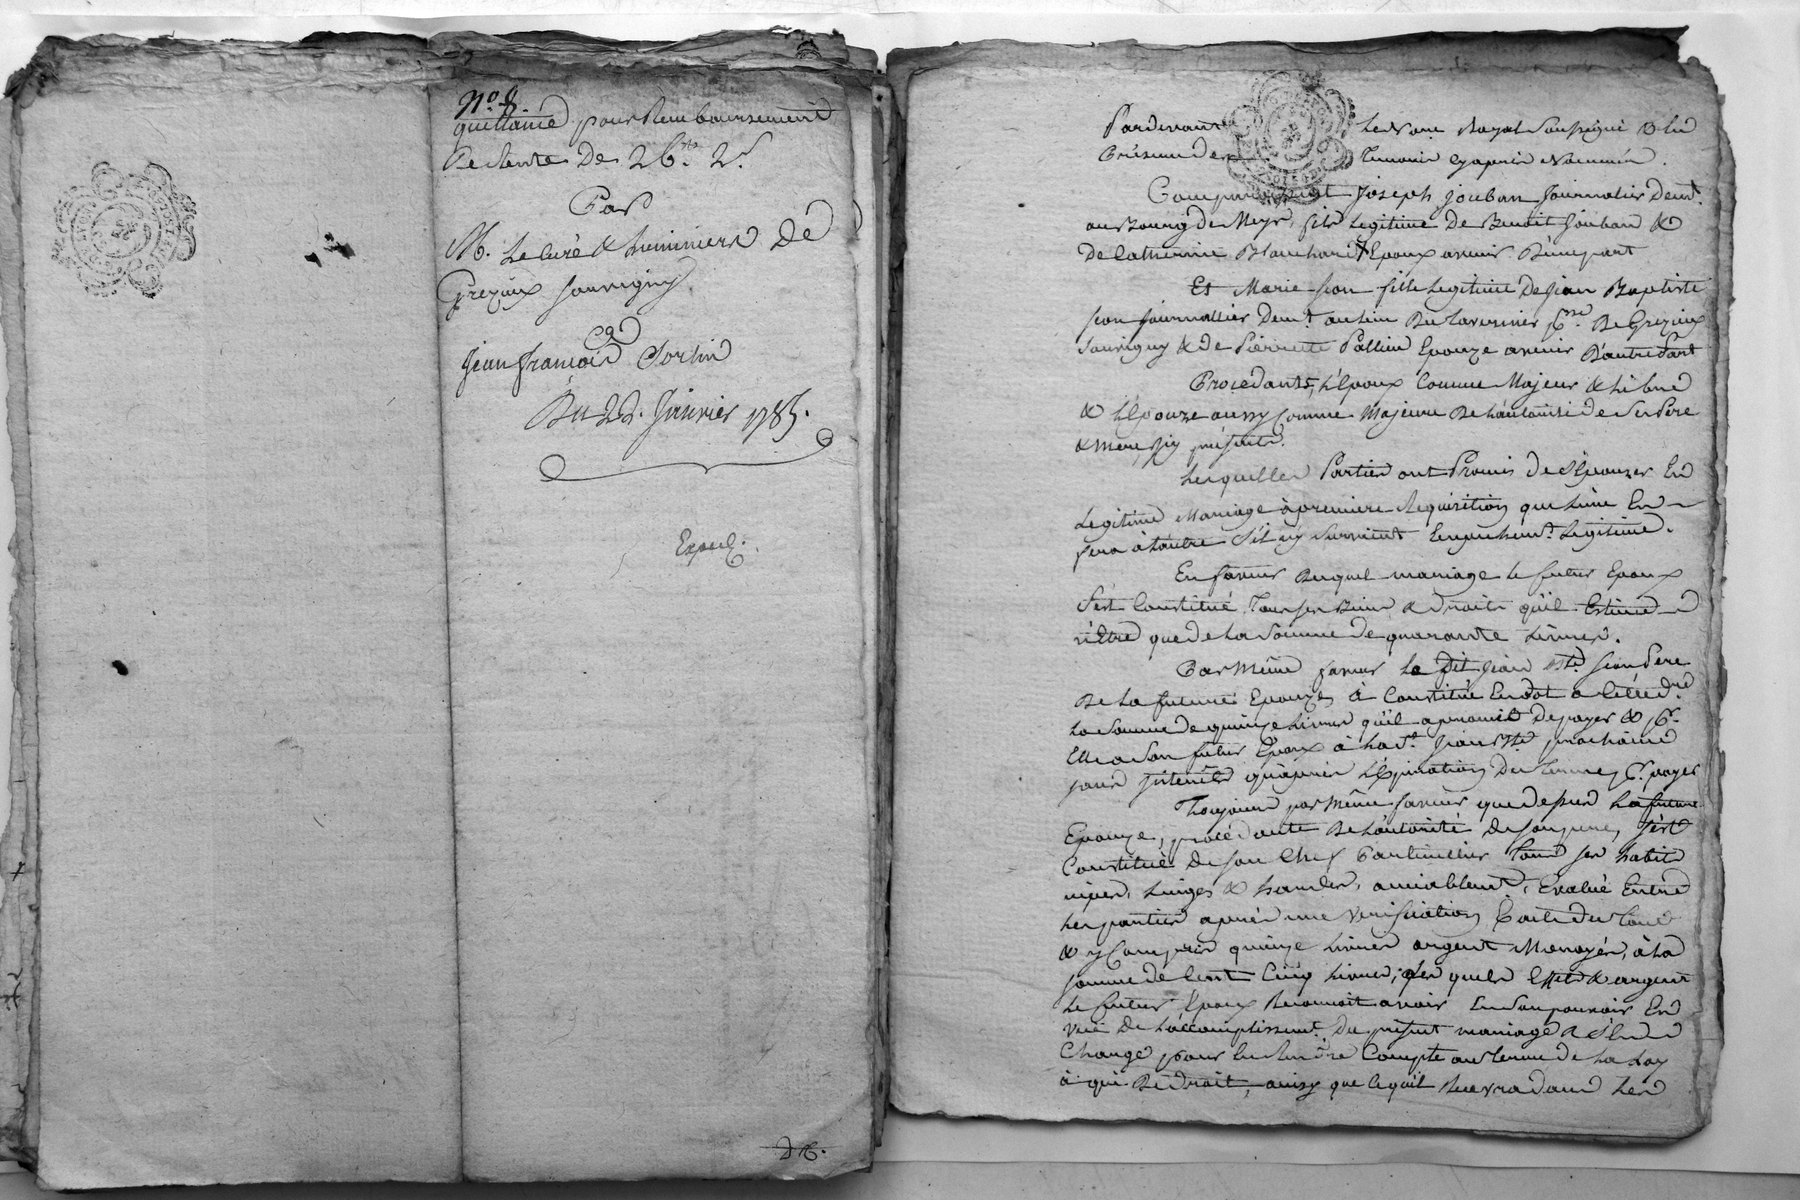 No. 8.
quittance pour Remboursement
de Rente de 26lt 2s
Par
M. Le Curé & Luminiers de
Grezieux Souvigny
a
Jean françois Sortin
Du 22. Janvier 1785.
Expedié.
Pardevant Le No.re Royal soussigné & en
Présence des Temoins cy après Nommés.
Comparurent Joseph Jouban Journalier Demt.
au Bourg de Meys, fils Legitime de Benoit Jouban &
de Catherine Blanchard, Epoux avenir D'une part
Et Marie Jean fille Legitime de Jean Baptiste
Jean Journallier Demt. au lieu du Tavernier psse. de Grezieux
Souvigny & de Pierrette Pallieu Epouze avenir D'autre Part
Procedants, L'Epoux Comme Majeur & Libre
& L'Epouze aussy Comme Majeure de L'autorité de ses Pere
& Mere, icy présents.
Lesquelles Parties ont Promis de s'Epouzer En
Legitime Mariage à premiere Requisition que L'une En
fera à L'autre s'il n'y survient Empechemt. Legitime.
En faveur duquel mariage le futur Epoux
s'est Constitué Tous ses Biens & Droits qu'il Estime
n'Etre que de La Somme de quarante Livres.
Par Même faveur Le dit Jean Bte. Jean Pere
de La future Epouze, à Constitué En dot a
La Somme de quinze Livres qu'il a promis de payer & pr.
Elle a Son futur Epoux à La St. Jean Bte. prochaine
sans Interêts qu'après L'Expiration du Terme pr. payer
Toujours par Même faveur que dessus La future
Epouze, procédante de L'autorité de son pere, s'est
Constitué de son Chef Particullier Tous ses habits
nipes, Linges & hardes, amiablemt. Evalué Entre
Les parties après une verification Faite du Tout
& y Compris quinze Livres argent Monoyés, à La
somme de Cent Cinq Livres; Les quels Effets & argent
Le futur Epoux Reconnoit avoir En son pouvoir En
vüe de L'accomplissemt. Du présent mariage & s'En
Charge pour En Rendre Compte au Terme de La Loy
à qui De droit, ainsy que ce qu'il Recevra dans Les